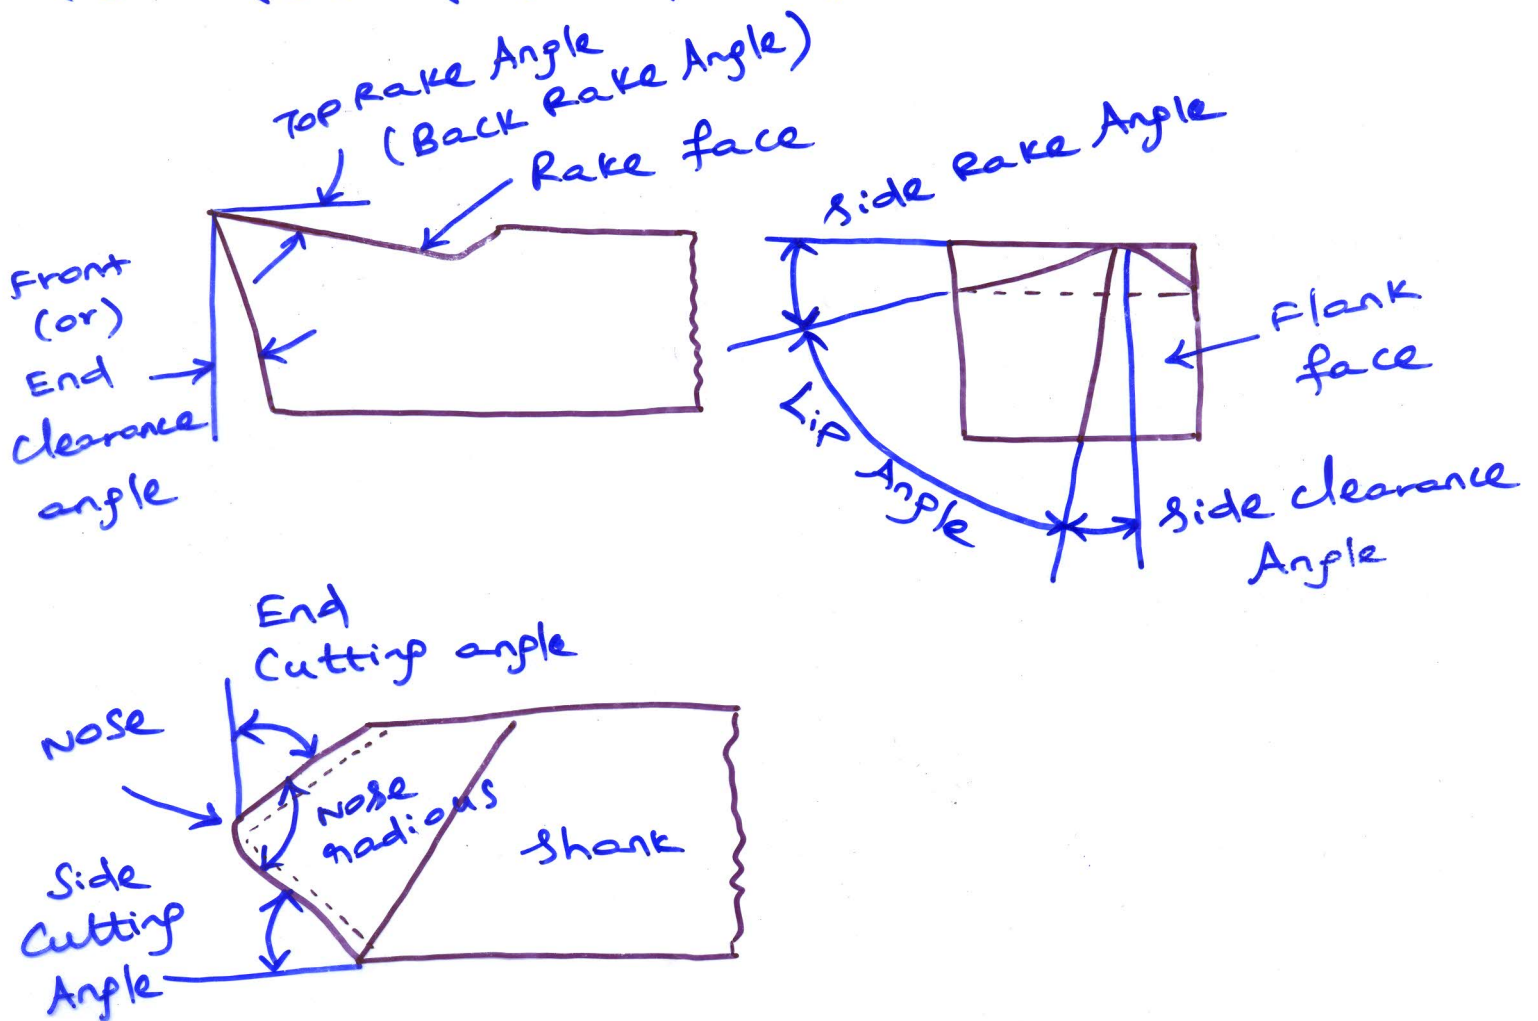 Top Rake Angle
(Back Rake Angle)
Rake face
Side Rake Angle
Front
(or)
End
Clearance
angle
Flank
face
Lip Angle
Side Clearance
Angle
End
Cutting angle
Nose
Nose
radious
Shank
Side
Cutting
Angle